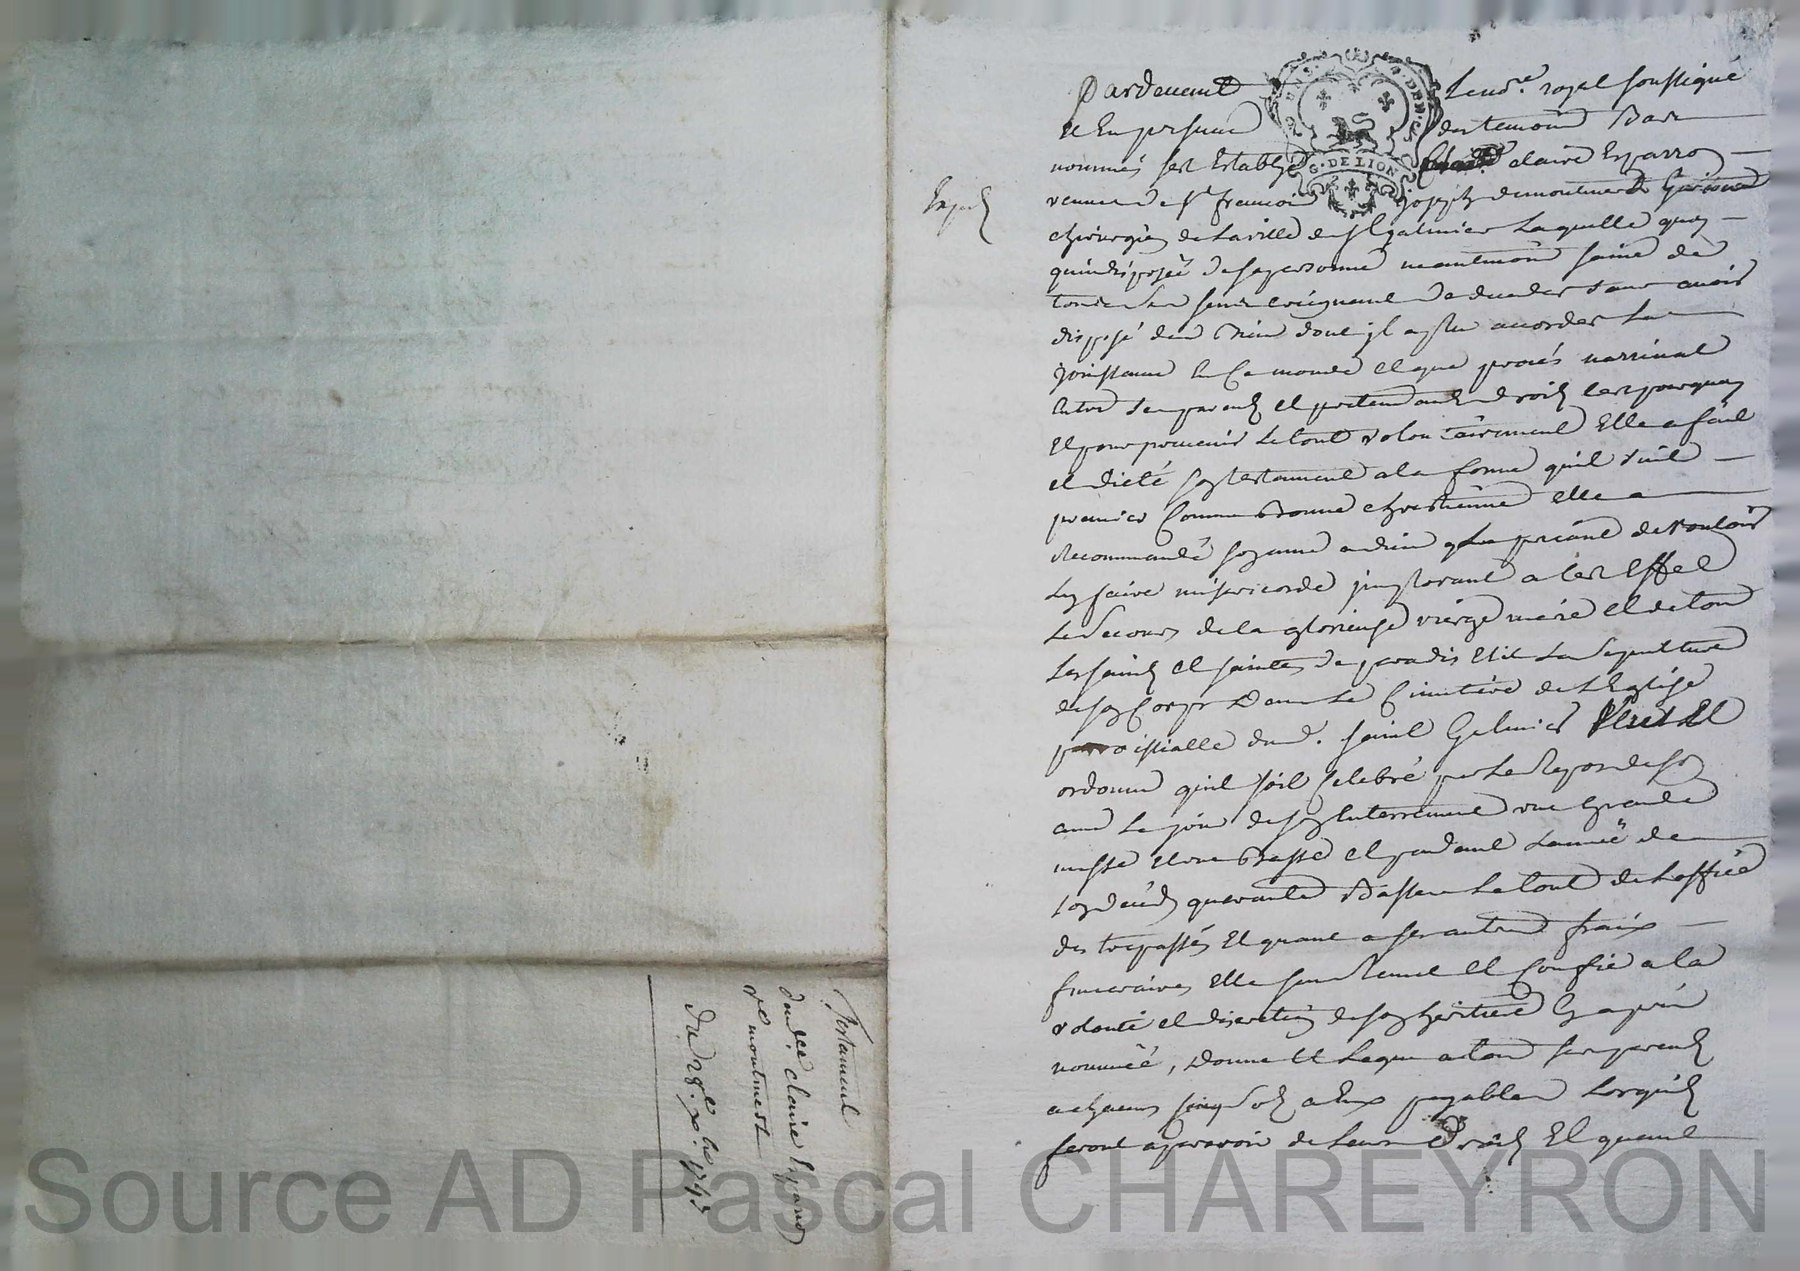 Pardevant Le no.re royal soussigné
et En presence des temoins Bas
nommés fut Establye claire Esparron
veuve de sr françois joseph demontmert
chirurgien de la ville de st galmier Laquelle quoy
quindisposée de sa personne neantmoins saine de
tous ses sens craignant de deceder sans avoir
disposé des Biens dont il a plu accorder La
jouissance En Ce monde et que procés narrivat
Entre ses parents et pretendants droits cest pourquoy
Et pour prevenir Le tout volontairement Elle a fait
et dicté son testament a la forme quil suit
premier Comme Bonne chrestienne elle a
Recommandé son ame a dieu Le priant de vouloir
Luy faire misericorde jmplorant a cest Effet
Le secours de la glorieuse vierge marie et de tous
Les saints et saintes de paradis Elit La sepulture
de son Corps Dans Le Cimetière de L'Eglise
paroissialle dud. saint Galmier Veut Et
ordonne quil soit Celebré pour Le Repos de son
ame Le jour de son Enterrement une Grande
messe et une Basse et pendant Lannée de
son deceds quarante Basses Le tout de Loffice
des trepassés Et quant a ses autres fraix
funeraires Elle sen Remet et Confie a la
volonté et discretion de son heritiere Cy apres
nommée, Donne et Legue a tous ses parents
a chacun cinq sols a Eux payables Lorsquils
seront aparoir de Leurs Droits Et quant
Expedié
Testament
de claire Esparron
ve montmert
Du 28e xbre 1743
G. DE LION
Source AD Pascal CHAREYRON